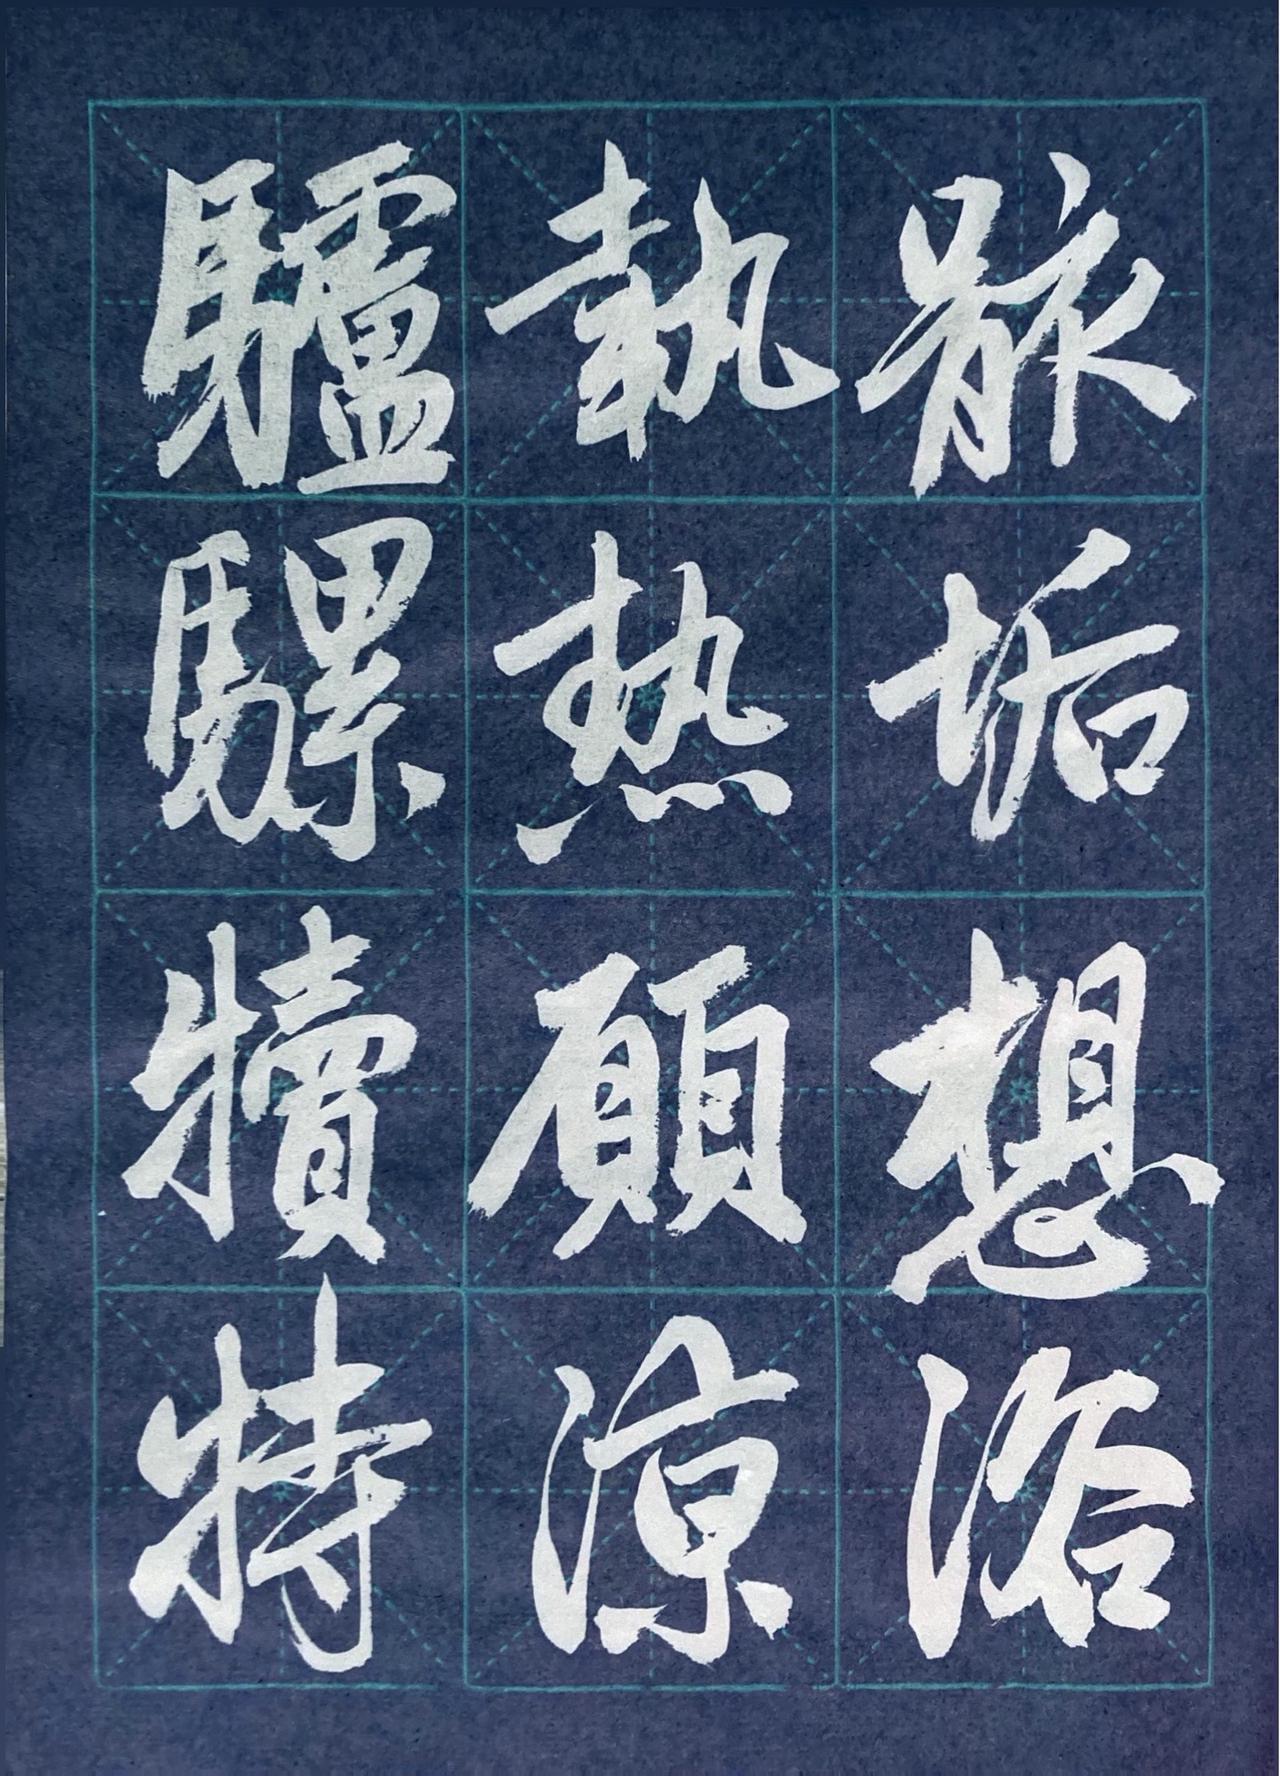 骸垢想浴
執热願涼
驢騾犢特